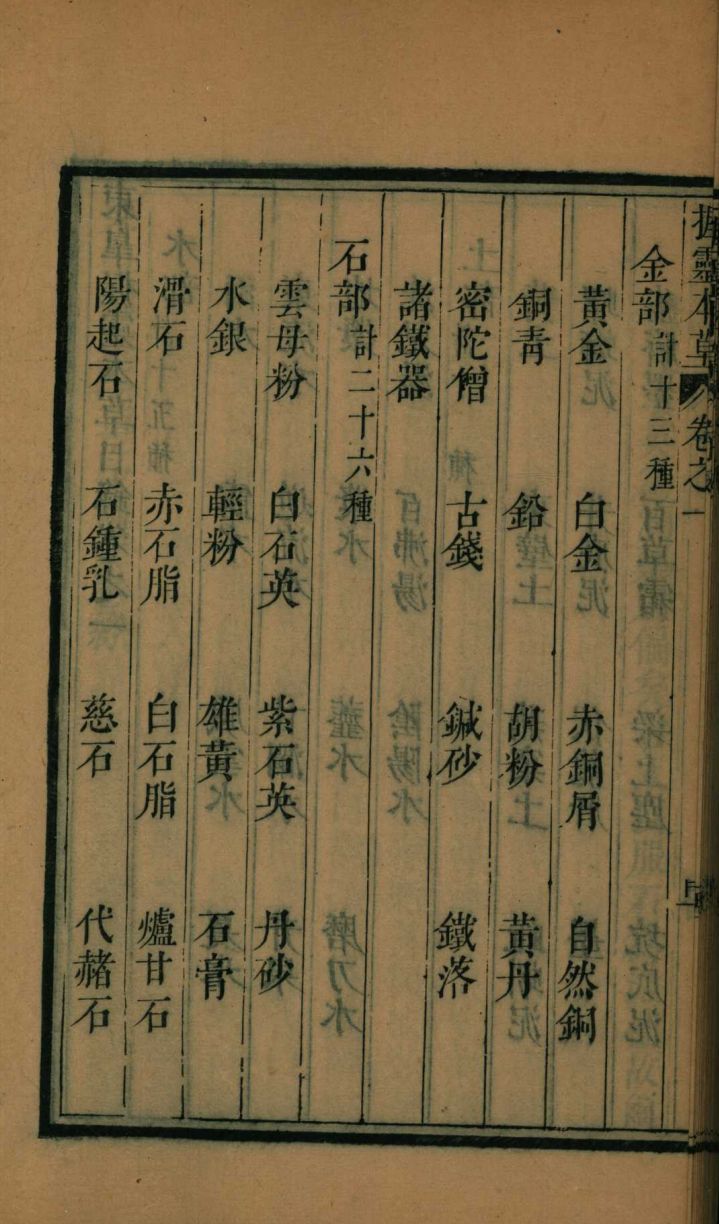 握靈本草 卷之一
金部計十三種
黃金 白金 赤銅屑 自然銅
銅青 鉛 胡粉 黃丹
密陀僧 古錢 鍼砂 鐵落
諸鐵器
石部計二十六種
雲母粉 白石英 紫石英 丹砂
水銀 輕粉 雄黃 石膏
滑石 赤石脂 白石脂 爐甘石
陽起石 石鍾乳 慈石 代赭石